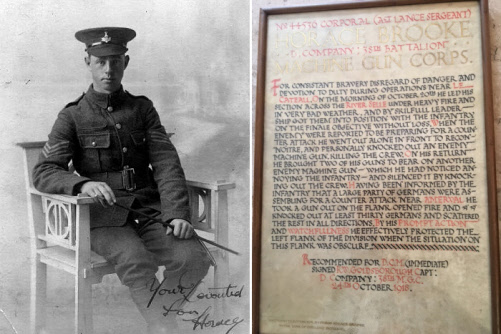 Your devoted
son
Horace
No 44530 CORPORAL (A/ST LANCE SERGEANT)
BROOKE
"D" COMPANY: 38TH BATTALION
MACHINE GUN CORPS.
FOR CONSISTANT BRAVERY DISREGARD OF DANGER AND
DEVOTION TO DUTY DURING OPERATIONS NEAR LE
CATEAU. IN THE MORNING OF OCTOBER 20TH HE LED HIS
SECTION ACROSS THE RIVER SELLE UNDER HEAVY FIRE AND
IN VERY BAD WEATHER, AND BY SKILFULL LEADER-
SHIP GOT THEM INTO POSITION WITH THE INFANTRY
ON THE FINAL OBJECTIVE WITHOUT LOSS. WHEN THE
ENEMY WERE REPORTED TO BE PREPARING FOR A COUN-
TER ATTACK HE WENT OUT ALONE IN FRONT TO RECON-
NOITRE, AND PERSONALY KNOCKED OUT AN ENEMY
MACHINE GUN, KILLING THE CREW. ON HIS RETURN
HE BROUGHT TWO OF HIS GUNS TO BEAR ON ANOTHER
ENEMY MACHINE GUN – WHICH HE HAD NOTICED AN-
NOYING THE INFANTRY – AND SILENCED IT BY KNOCK-
ING OUT THE CREW. HAVING BEEN INFORMED BY THE
INFANTRY THAT A LARGE PARTY OF GERMANS WERE AS-
SEMBLING FOR A COUNTER ATTACK NEAR AMERVAL HE
TOOK A GUN OUT ON THE FLANK, OPENED FIRE AND
KNOCKED OUT AT LEAST THIRTY GERMANS AND SCATTERED
THE REST IN ALL DIRECTIONS. BY HIS PROMPT ACTION
AND WATCHFULLNESS HE EFFECTIVELY PROTECTED THE
LEFT FLANK OF THE DIVISION WHEN THE SITUATION ON
THIS FLANK WAS OBSCURE.
RECOMMENDED FOR D.C.M. (IMMEDIATE)
SIGNED GOLDSBOROUGH CAPT:
D. COMPANY: 38TH M.G.C.
24TH OCTOBER. 1918.